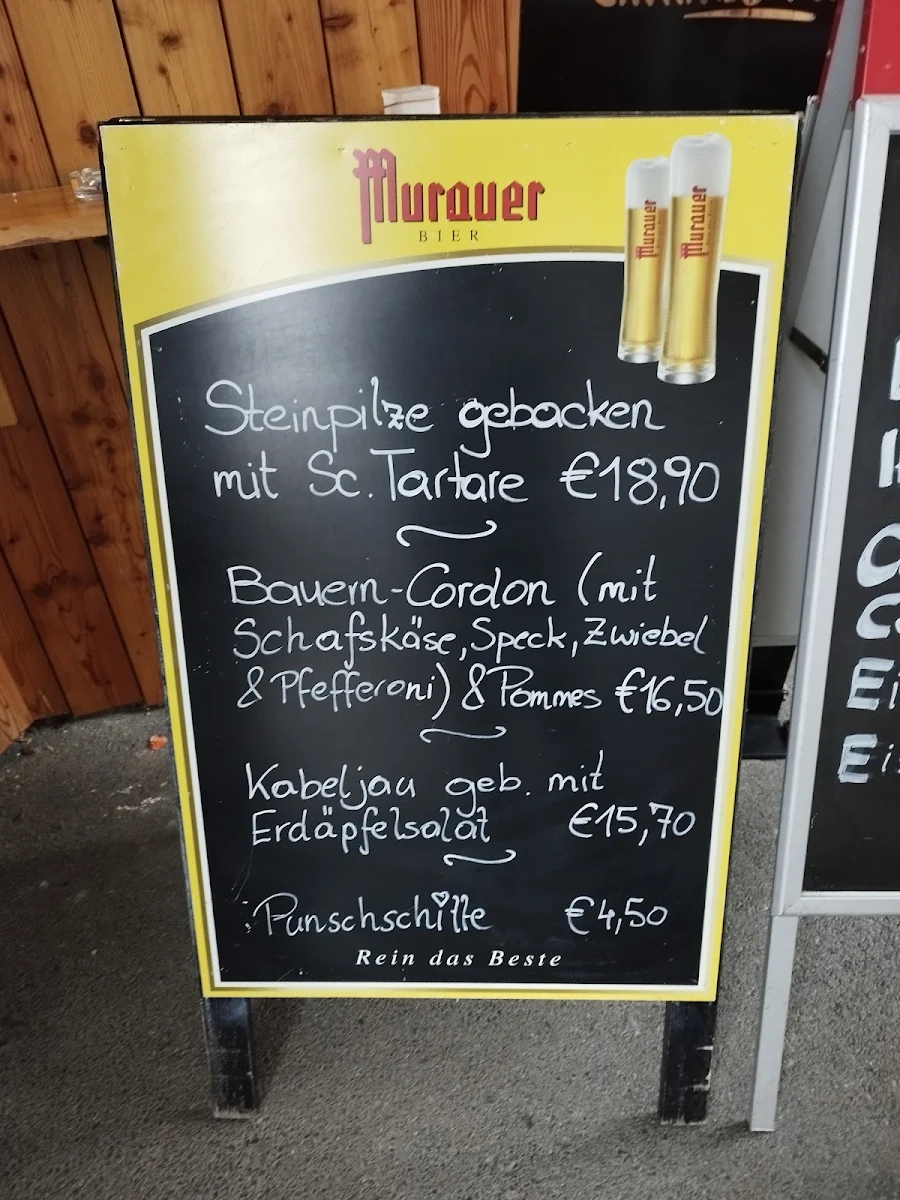 Murauer
BIER
Murauer
Murauer
Steinpilze gebacken
mit Sc. Tartare €18,90
Bauern-Cordon (mit
Schafskäse, Speck, Zwiebel
& Pfefferoni) & Pommes €16,50
Kabeljau geb. mit
Erdäpfelsalat €15,70
Punschschitte €4,50
Rein das Beste
E
Ei